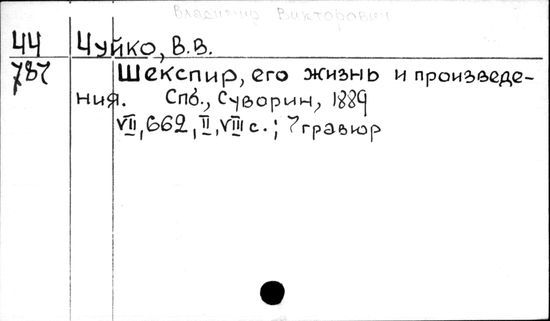 Владимир Викторович
44 Чуйко, В.В.
787 Шекспир, его жизнь и произведе-
ния. Спб., Суворин, 1889
VII, 662, II, VIII с.; 7 гравюр